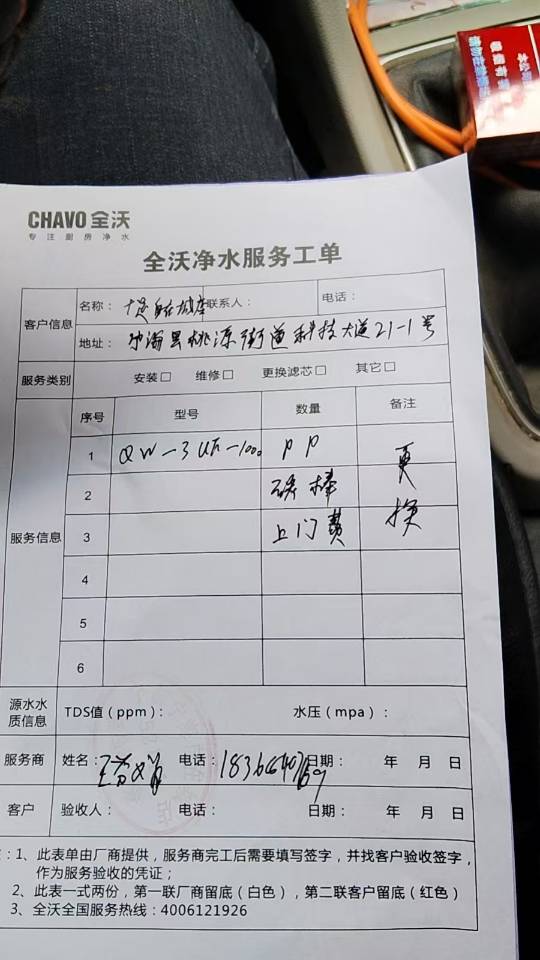 CHAVO 全沃
专注厨房净水
全沃净水服务工单
客户信息 名称： 联系人： 电话：
地址： 桃源街道科技大道21-1号
服务类别 安装□ 维修□ 更换滤芯□ 其它□
服务信息 序号 型号 数量 备注
1 QW-3UF-1000 PP 更
2 碳棒 换
3 上门费
4
5
6
源水水质信息 TDS值（ppm）： 水压（mpa）：
服务商 姓名： 电话： 日期： 年 月 日
客户 验收人： 电话： 日期： 年 月 日
1、此表单由厂商提供，服务商完工后需要填写签字，并找客户验收签字，
作为服务验收的凭证；
2、此表一式两份，第一联厂商留底（白色），第二联客户留底（红色）
3、全沃全国服务热线：4006121926